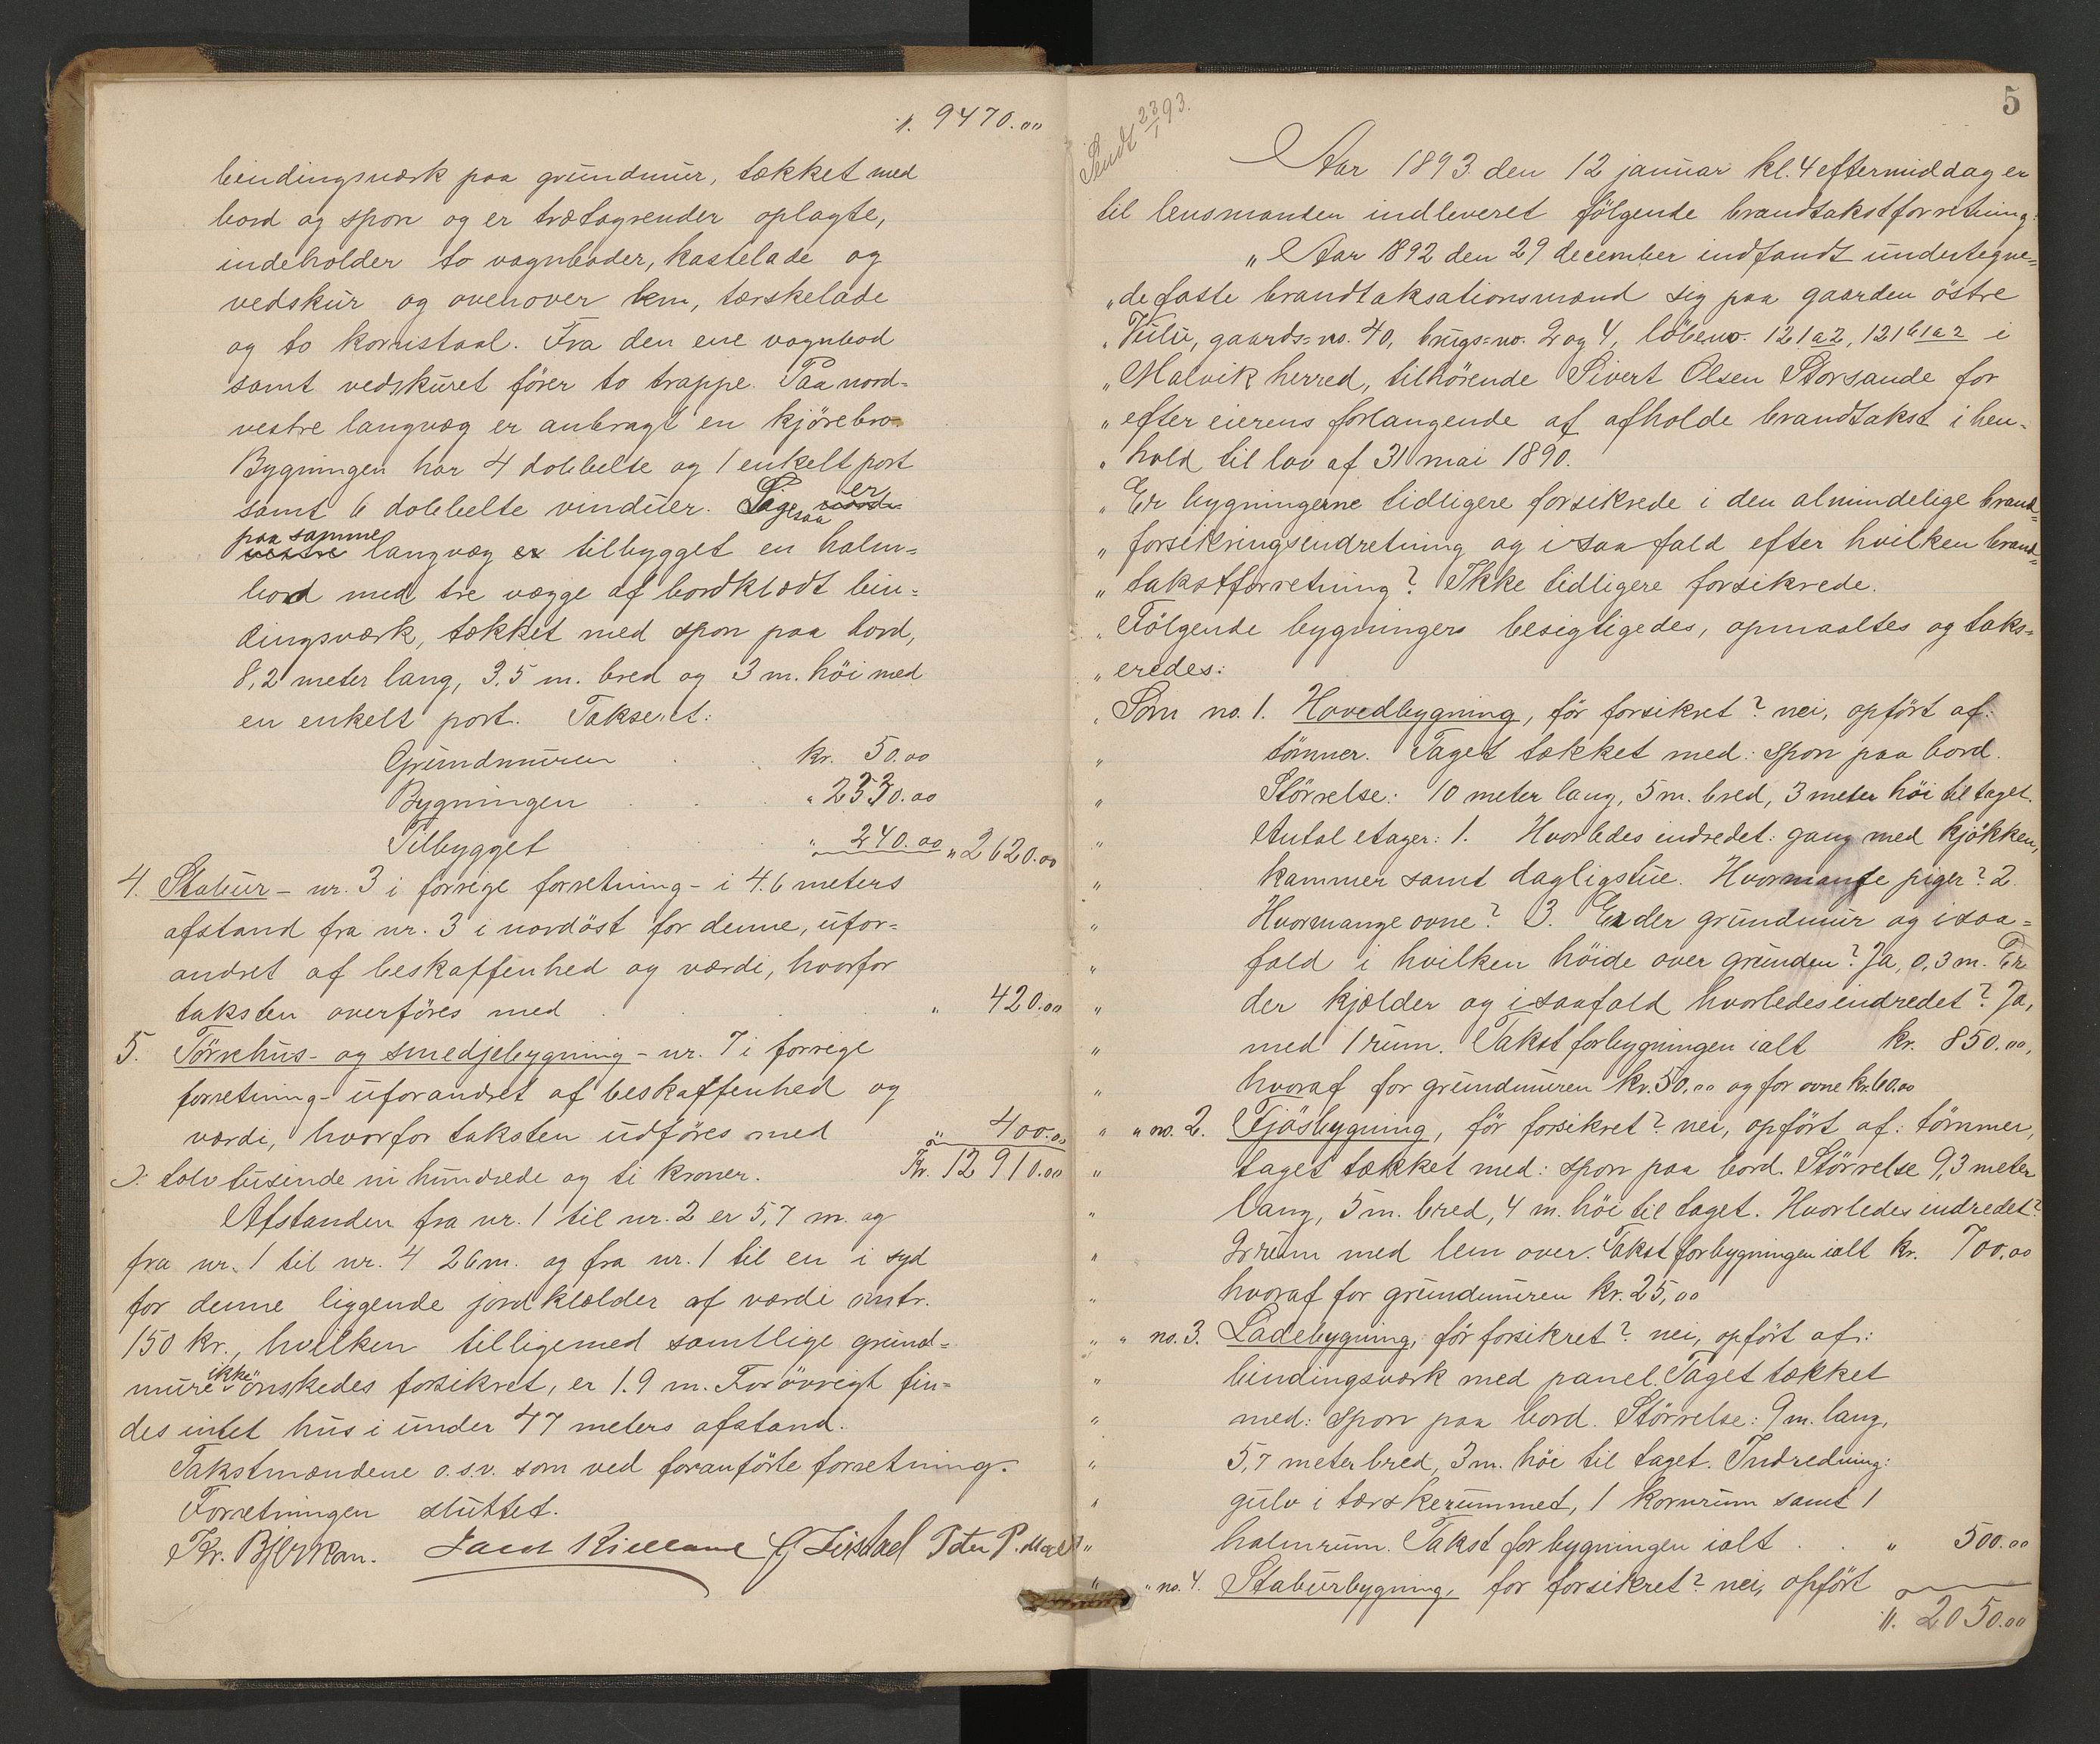 9470.00
bindingsværk paa grundmur, tækket med
bord og spon og er trætagrender oplagte,
indeholder to vognboder, kastelade og
vedskur og ovenover lem, tærskelade
og to kornstaal. Fra den ene vognbod
samt vedskuret fører to trappe. Paa nord-
vestre langvæg er anbragt en kjørebro.
Bygningen har 4 dobbelte og 1 enkelt port
samt 6 dobbelte vinduer. Ligesaa er
paa samme langvæg er tilbygget en halm-
bod med tre vægge af bordklædt bin-
dingsværk, tækket med spon paa bord,
8,2 meter lang, 3.5 m. bred og 3 m. høi med
en enkelt port. Takseret:
Grundmuren . . kr. 50.00
Bygningen . . " 2330.00
Tilbygget " 240.00 " 2620.00
4. Stabur - nr. 3 i forrige forretning - i 4.6 meters
afstand fra nr. 3 i nordöst for denne, ufor-
andret af beskaffenhed og værdi, hvorfor
taksten overföres med . . . " 420.00
5. Törrehus- og smedjebygning - nr. 7 i forrige
forretning - uforandret af beskaffenhed og
værdi, hvorfor taksten udföres med " 400.00
ɔ: tolv tusinde ni hundrede og ti kroner. Kr. 12910.00
Afstanden fra nr. 1 til nr. 2 er 5,7 m. og
fra nr. 1 til nr. 4 26 m. og fra nr. 1 til en i syd
for denne liggende jordkjælder af værdi omtr.
150 kr., hvilken tilligemed samtlige grund-
mure ikke önskedes forsikret, er 1.9 m. Forövrigt fin-
des intet hus i under 47 meters afstand.
Takstmændene o.s.v. som ved foranförte forretning.
Forretningen sluttet.
Kr. Bjerkan. Jacob Kielland Peter P.
5
Sendt 23/1 93.
Aar 1893 den 12 januar kl. 4 eftermiddag er
til lensmanden indleveret fölgende brandtakstforretning:
" Aar 1892 den 29 december indfandt undertegne-
" de faste brandtaksationsmænd sig paa gaarden östre
" Vulu, gaards-no. 40, brugs-no. 2 og 4, löbeno. 121a2, 121b1a2 i
" Malvik herred, tilhörende Sivert Olsen Storsande for
" efter eierens forlangende af afholde brandtakst i hen-
" hold til lov af 31 mai 1890.
" Er bygningerne tidligere forsikrede i den almindelige brand-
" forsikringsindretning og i saa fald efter hvilken brand-
" takstforretning? Ikke tidligere forsikrede.
" Fölgende bygninger besigtigedes, opmaaltes og taks-
" eredes:
" Som no. 1. Hovedbygning, för forsikret? nei, opfört af:
" tömmer. Taget tækket med: spon paa bord.
" Störrelse: 10 meter lang, 5 m. bred, 3 meter höi til taget.
" Antal etager: 1. Hvorledes indredet: gang med kjökken,
" kammer samt dagligstue. Hvormange piger? 2.
" Hvormange ovne? 3. Er der grundmur og i saa-
" fald i hvilken höide over grunden? Ja, 0,3 m. Er
" der kjælder og i saafald hvorledes indredet? Ja,
" med 1 rum. Takst for bygningen ialt kr. 850.00,
" hvoraf for grundmuren kr. 50,00 og for ovne kr. 60.00
" " no. 2. Fjösbygning, för forsikret? nei, opfört af: tömmer,
" taget tækket med: spon paa bord. Störrelse 9,3 meter
" lang, 5 m. bred, 4 m. höi til taget. Hvorledes indredet?
" 2 rum med lem over. Takst for bygningen ialt kr. 700.00
" hvoraf for grundmuren kr. 25,00
" " no. 3. Ladebygning, för forsikret? nei, opfört af:
" bindingsværk med panel. Taget tækket
" med: spon paa bord. Störrelse: 9 m. lang,
" 5,7 meter bred, 3 m. höi til taget. Indredning:
" gulv i tærskerummet, 1 kornrum samt 1
" halmrum. Takst for bygningen ialt . . " 500.00
" " no. 4. Staburbygning, för forsikret? nei, opfört
2050.00